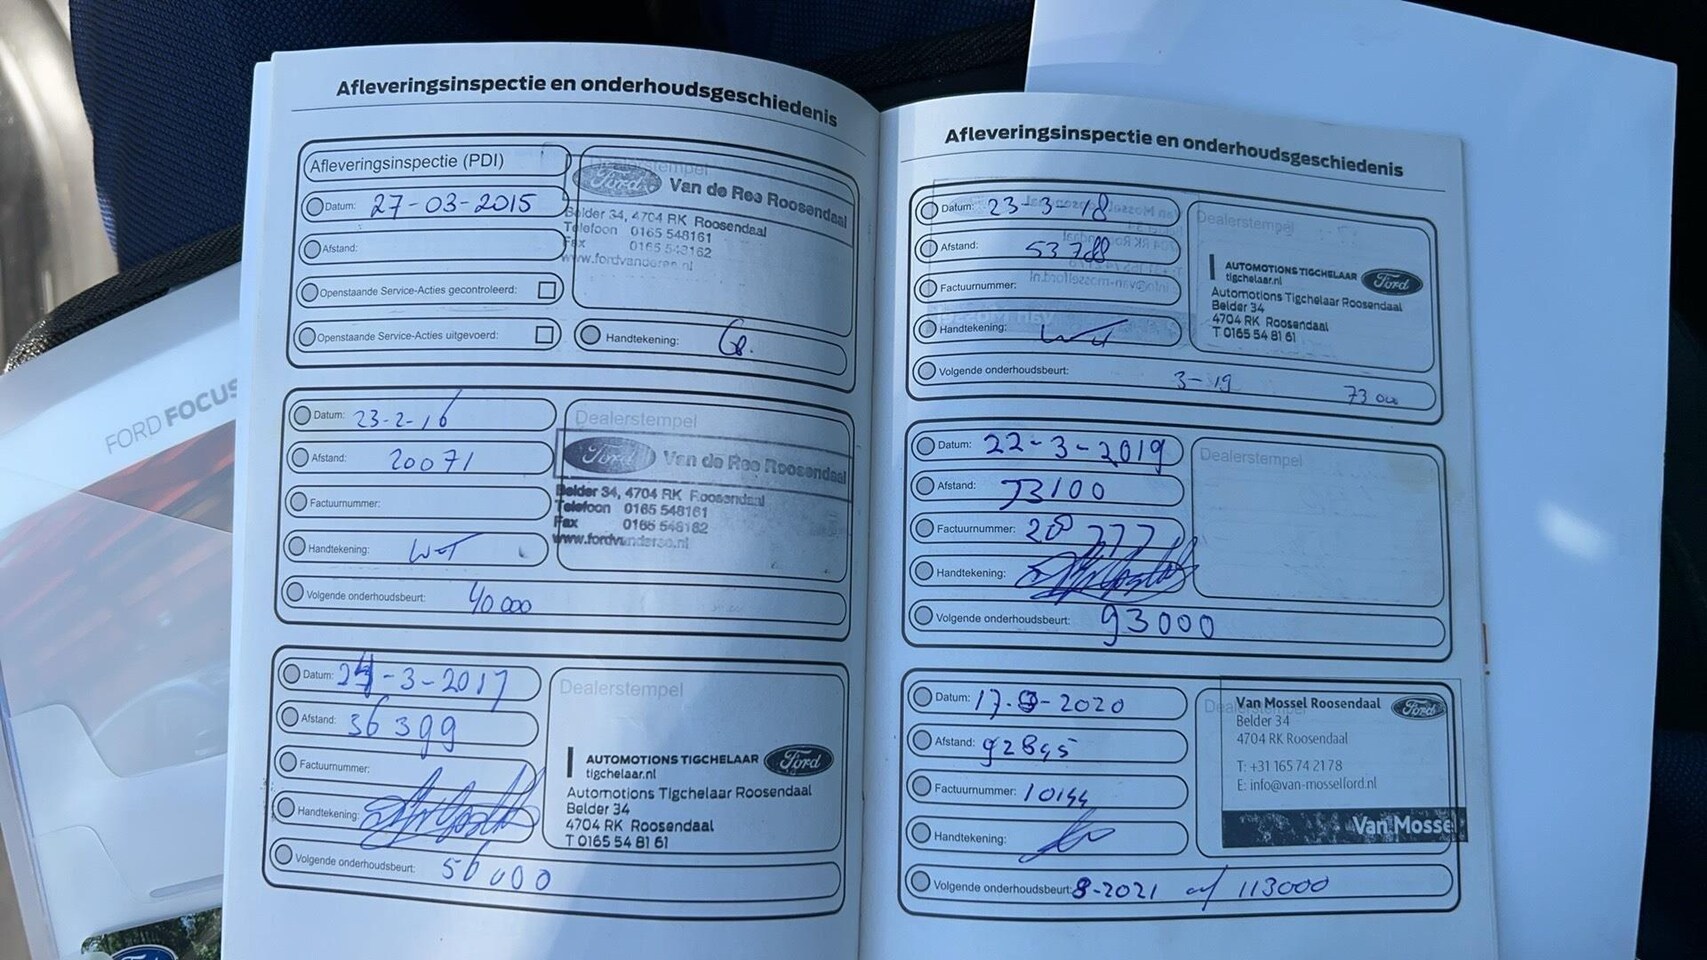 Afleveringsinspectie en onderhoudsgeschiedenis
Afleveringsinspectie (PDI)
Datum: 27-03-2015
Afstand:
Openstaande Service-Acties gecontroleerd:
Openstaande Service-Acties uitgevoerd:
Dealerstempel
Ford Van de Ree Roosendaal
Belder 34, 4704 RK Roosendaal
Telefoon 0165 548161
Fax 0165 548162
www.fordvanderee.nl
Handtekening:
Datum: 23-2-16
Afstand: 20071
Factuurnummer:
Handtekening:
Volgende onderhoudsbeurt: 40000
Dealerstempel
Ford Van de Ree Roosendaal
Belder 34, 4704 RK Roosendaal
Telefoon 0165 548161
Fax 0165 548162
www.fordvanderee.nl
Datum: -3-2017
Afstand: 36399
Factuurnummer:
Handtekening:
Volgende onderhoudsbeurt: 56000
Dealerstempel
AUTOMOTIONS TIGCHELAAR Ford
tigchelaar.nl
Automotions Tigchelaar Roosendaal
Belder 34
4704 RK Roosendaal
T 0165 54 81 61
Afleveringsinspectie en onderhoudsgeschiedenis
Datum: 23-3-18
Afstand: 53788
Factuurnummer:
Handtekening:
Volgende onderhoudsbeurt: 3-19 73000
Dealerstempel
AUTOMOTIONS TIGCHELAAR Ford
tigchelaar.nl
Automotions Tigchelaar Roosendaal
Belder 34
4704 RK Roosendaal
T 0165 54 81 61
Datum: 22-3-2019
Afstand: 73100
Factuurnummer: 20777
Handtekening:
Volgende onderhoudsbeurt: 93000
Dealerstempel
Datum: 17-8-2020
Afstand: 92895
Factuurnummer: 10144
Handtekening:
Volgende onderhoudsbeurt: 8-2021 of 113000
Dealerstempel
Van Mossel Roosendaal Ford
Belder 34
4704 RK Roosendaal
T: +31 165 74 21 78
E: info@van-mosselford.nl
Van Mosse
FORD FOCUS